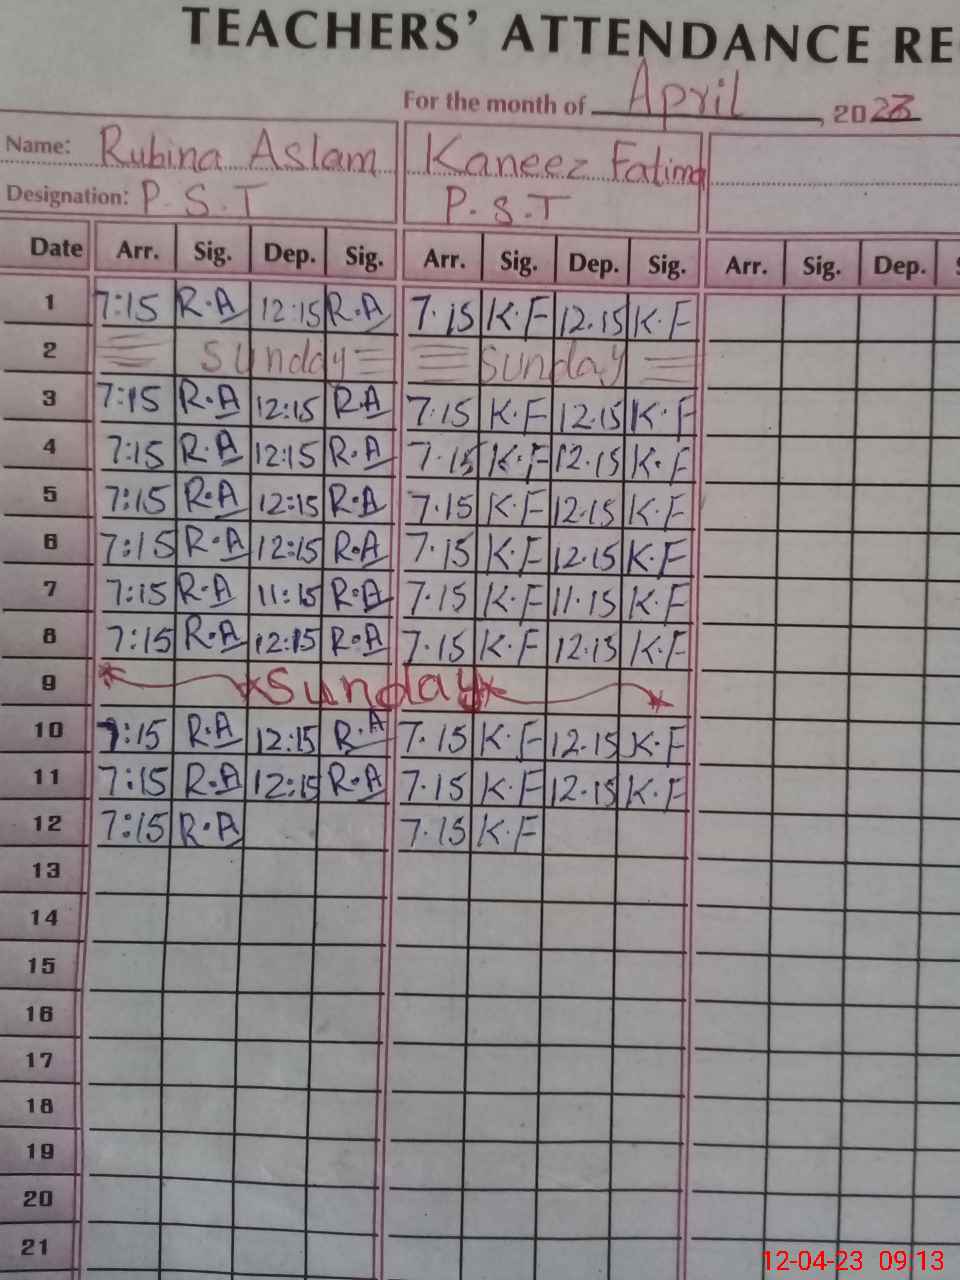 TEACHERS' ATTENDANCE RE
For the month of April, 2023
Name: Rubina Aslam Kaneez Fatima
Designation: P.S.T P.S.T
Date Arr. Sig. Dep. Sig. Arr. Sig. Dep. Sig. Arr. Sig. Dep. S
1 7:15 R.A 12:15 R.A 7.15 K.F 12.15 K.F
2 Sunday Sunday
3 7:15 R.A 12:15 R.A 7.15 K.F 12.15 K.F
4 7:15 R.A 12:15 R.A 7.15 K.F 12.15 K.F
5 7:15 R.A 12:15 R.A 7.15 K.F 12.15 K.F
6 7:15 R.A 12:15 R.A 7.15 K.F 12.15 K.F
7 7:15 R.A 11:15 R.A 7.15 K.F 11.15 K.F
8 7:15 R.A 12:15 R.A 7.15 K.F 12.15 K.F
9 Sunday
10 7:15 R.A 12:15 R.A 7.15 K.F 12.15 K.F
11 7:15 R.A 12:15 R.A 7.15 K.F 12.15 K.F
12 7:15 R.A 7.15 K.F
13
14
15
16
17
18
19
20
21
12-04-23 09:13